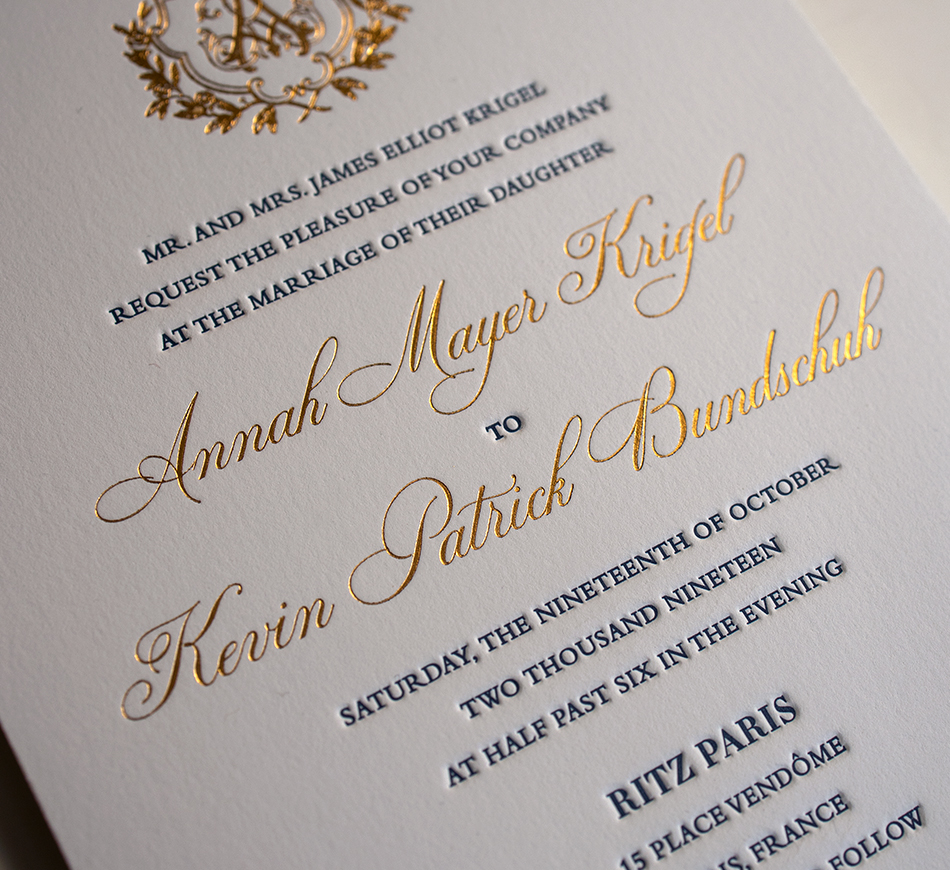 MR. AND MRS. JAMES ELLIOT KRIGEL
REQUEST THE PLEASURE OF YOUR COMPANY
AT THE MARRIAGE OF THEIR DAUGHTER
Annah Mayer Krigel
TO
Kevin Patrick Bundschuh
SATURDAY, THE NINETEENTH OF OCTOBER
TWO THOUSAND NINETEEN
AT HALF PAST SIX IN THE EVENING
RITZ PARIS
15 PLACE VENDÔME
FRANCE
FOLLOW